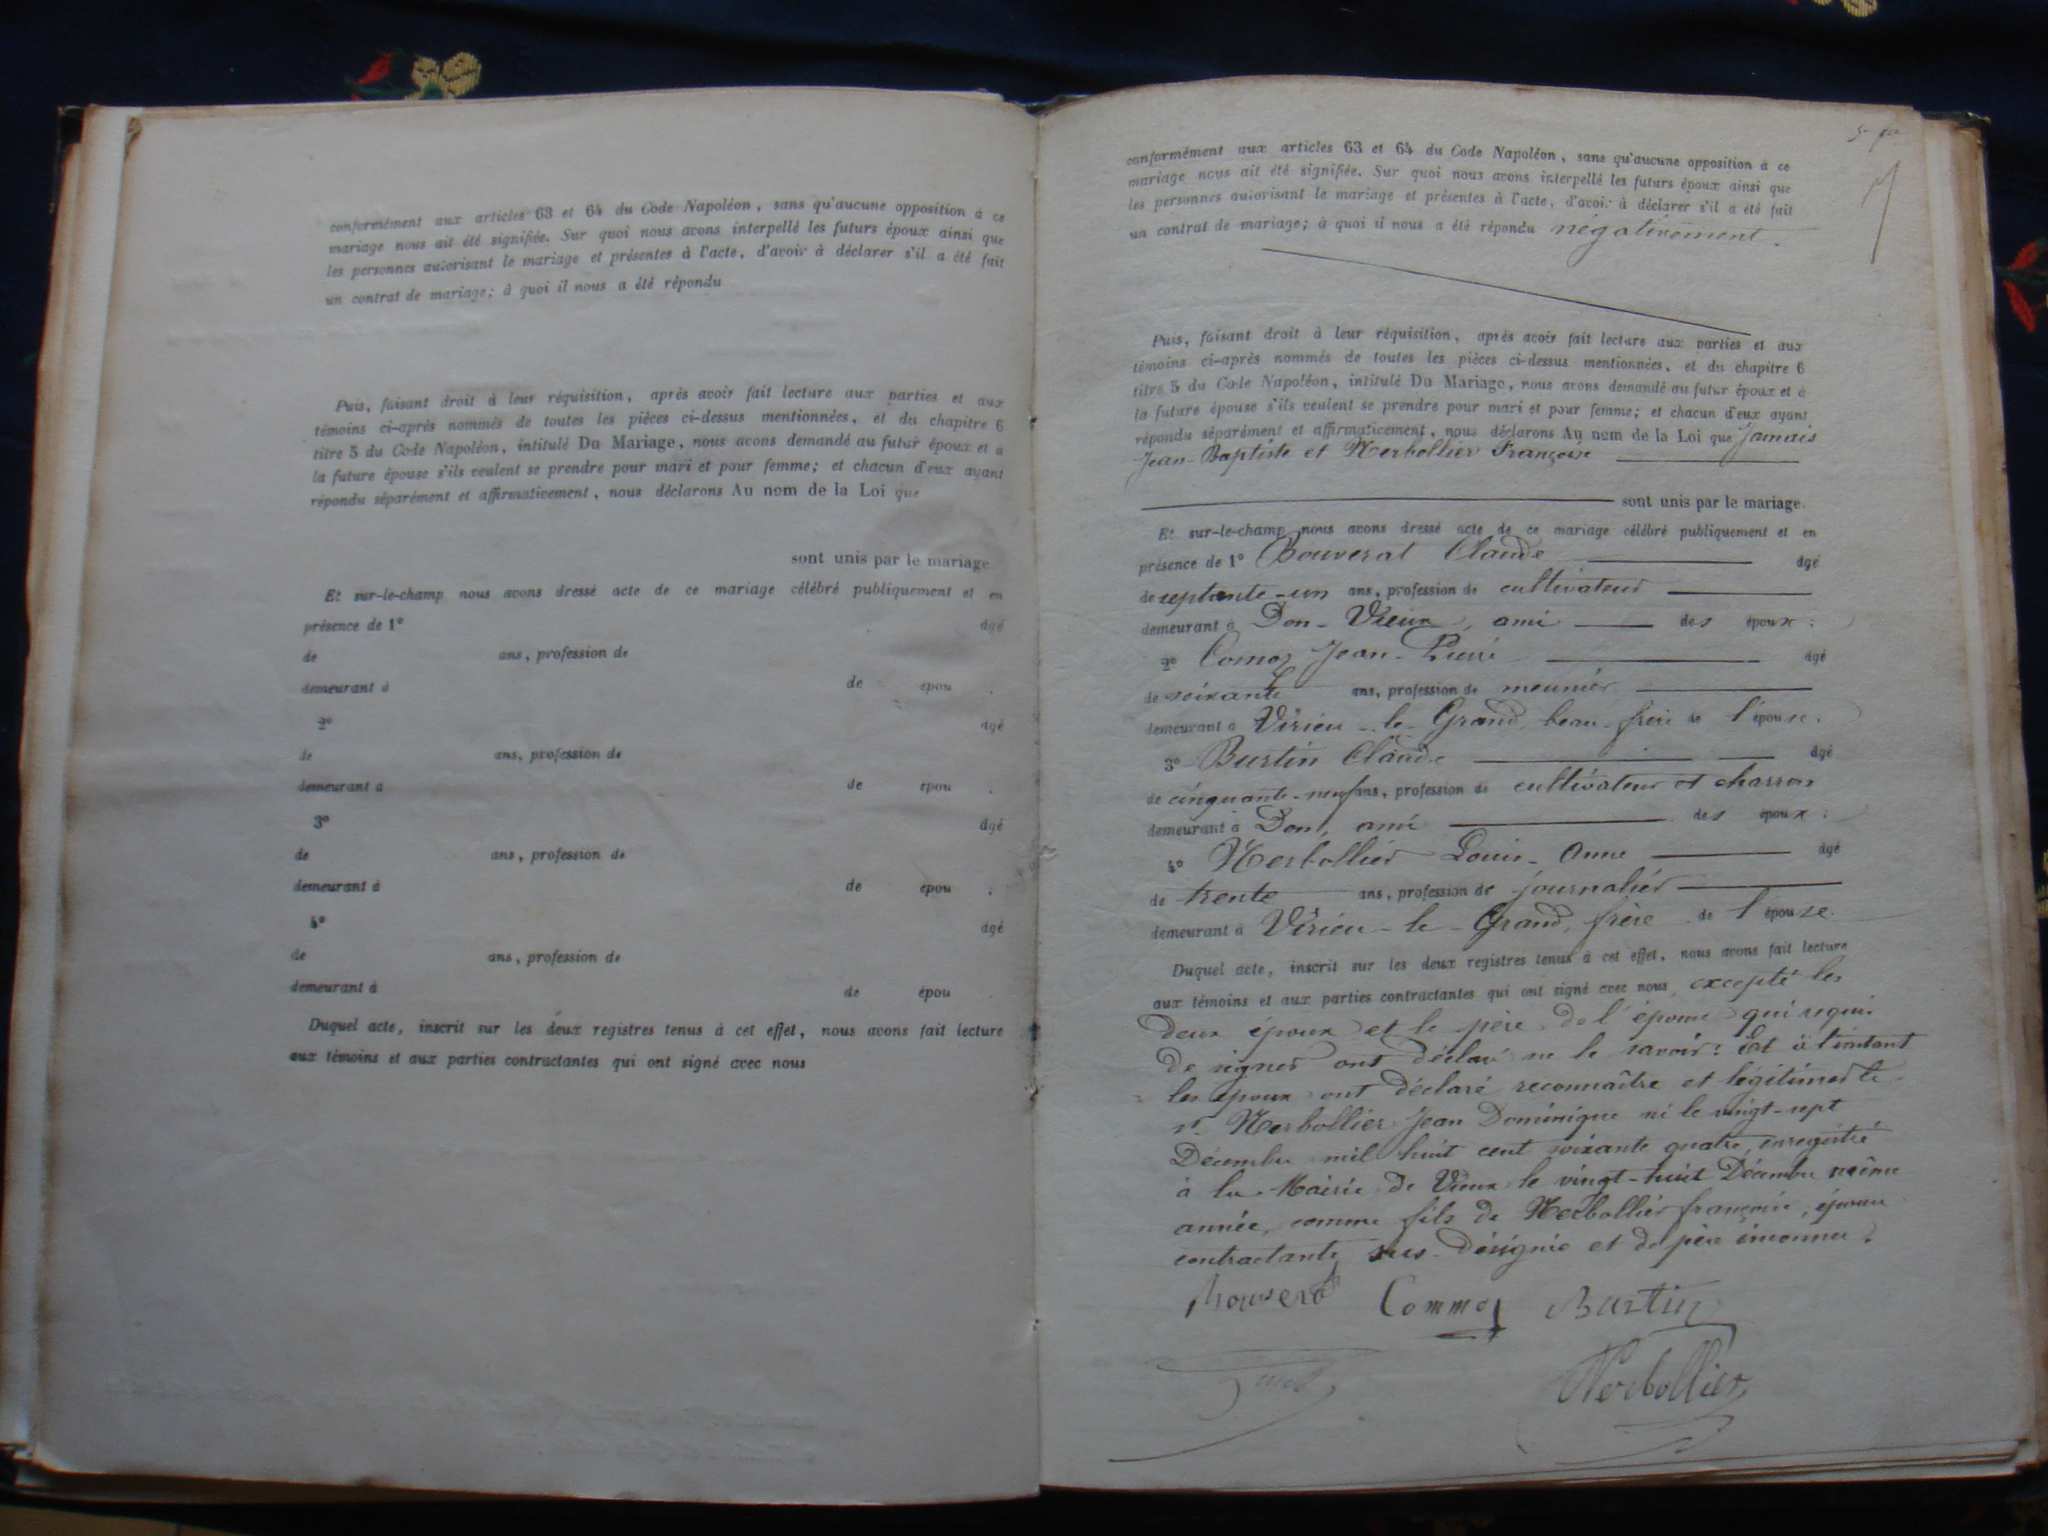 conformément aux articles 63 et 64 du Code Napoléon, sans qu'aucune opposition à ce
mariage nous ait été signifiée. Sur quoi nous avons interpellé les futurs époux ainsi que
les personnes autorisant le mariage et présentes à l'acte, d'avoir à déclarer s'il a été fait
un contrat de mariage; à quoi il nous a été répondu
Puis, faisant droit à leur réquisition, après avoir fait lecture aux parties et aux
témoins ci-après nommés de toutes les pièces ci-dessus mentionnées, et du chapitre 6
titre 5 du Code Napoléon, intitulé Du Mariage, nous avons demandé au futur époux et à
la future épouse s'ils veulent se prendre pour mari et pour femme; et chacun d'eux ayant
répondu séparément et affirmativement, nous déclarons Au nom de la Loi que
sont unis par le mariage
Et sur-le-champ nous avons dressé acte de ce mariage célébré publiquement et en
présence de 1° âgé
de ans, profession de
demeurant à de épou .
2° âgé
de ans, profession de
demeurant à de épou .
3° âgé
de ans, profession de
demeurant à de épou .
4° âgé
de ans, profession de
demeurant à de épou .
Duquel acte, inscrit sur les deux registres tenus à cet effet, nous avons fait lecture
aux témoins et aux parties contractantes qui ont signé avec nous
conformément aux articles 63 et 64 du Code Napoléon, sans qu'aucune opposition à ce
mariage nous ait été signifiée. Sur quoi nous avons interpellé les futurs époux ainsi que
les personnes autorisant le mariage et présentes à l'acte, d'avoir à déclarer s'il a été fait
un contrat de mariage; à quoi il nous a été répondu négativement.
Puis, faisant droit à leur réquisition, après avoir fait lecture aux parties et aux
témoins ci-après nommés de toutes les pièces ci-dessus mentionnées, et du chapitre 6
titre 5 du Code Napoléon, intitulé Du Mariage, nous avons demandé au futur époux et à
la future épouse s'ils veulent se prendre pour mari et pour femme; et chacun d'eux ayant
répondu séparément et affirmativement, nous déclarons Au nom de la Loi que Jamais
Jean-Baptiste et Herbollier Françoise
sont unis par le mariage.
Et sur-le-champ nous avons dressé acte de ce mariage célébré publiquement et en
présence de 1° Bouverat Claude âgé
de septante-un ans, profession de cultivateur
demeurant à Don-Vieux, ami des époux :
2° Comoz Jean-Pierre âgé
de soixante ans, profession de meunier
demeurant à Virieu-le-Grand, beau-frère de l'épouse.
3° Burtin Claude âgé
de cinquante-neuf ans, profession de cultivateur et charron
demeurant à Don, ami des époux :
4° Herbollier Louis-Anne âgé
de trente ans, profession de journalier
demeurant à Virieu-le-Grand, frère de l'épouse.
Duquel acte, inscrit sur les deux registres tenus à cet effet, nous avons fait lecture
aux témoins et aux parties contractantes qui ont signé avec nous, excepté les
deux époux et le père de l'épouse qui requis
de signer ont déclaré ne le savoir: Et à l'instant
les époux ont déclaré reconnaître et légitimer le
sr. Herbollier Jean Dominique né le vingt-sept
Décembre mil huit cent soixante quatre, enregistré
à la Mairie de Vieux le vingt-huit Décembre même
année, comme fils de Herbollier françoise, épouse
contractante sus-désignée et de père inconnu.
Bouverat Commoz Burtin
Herbollier